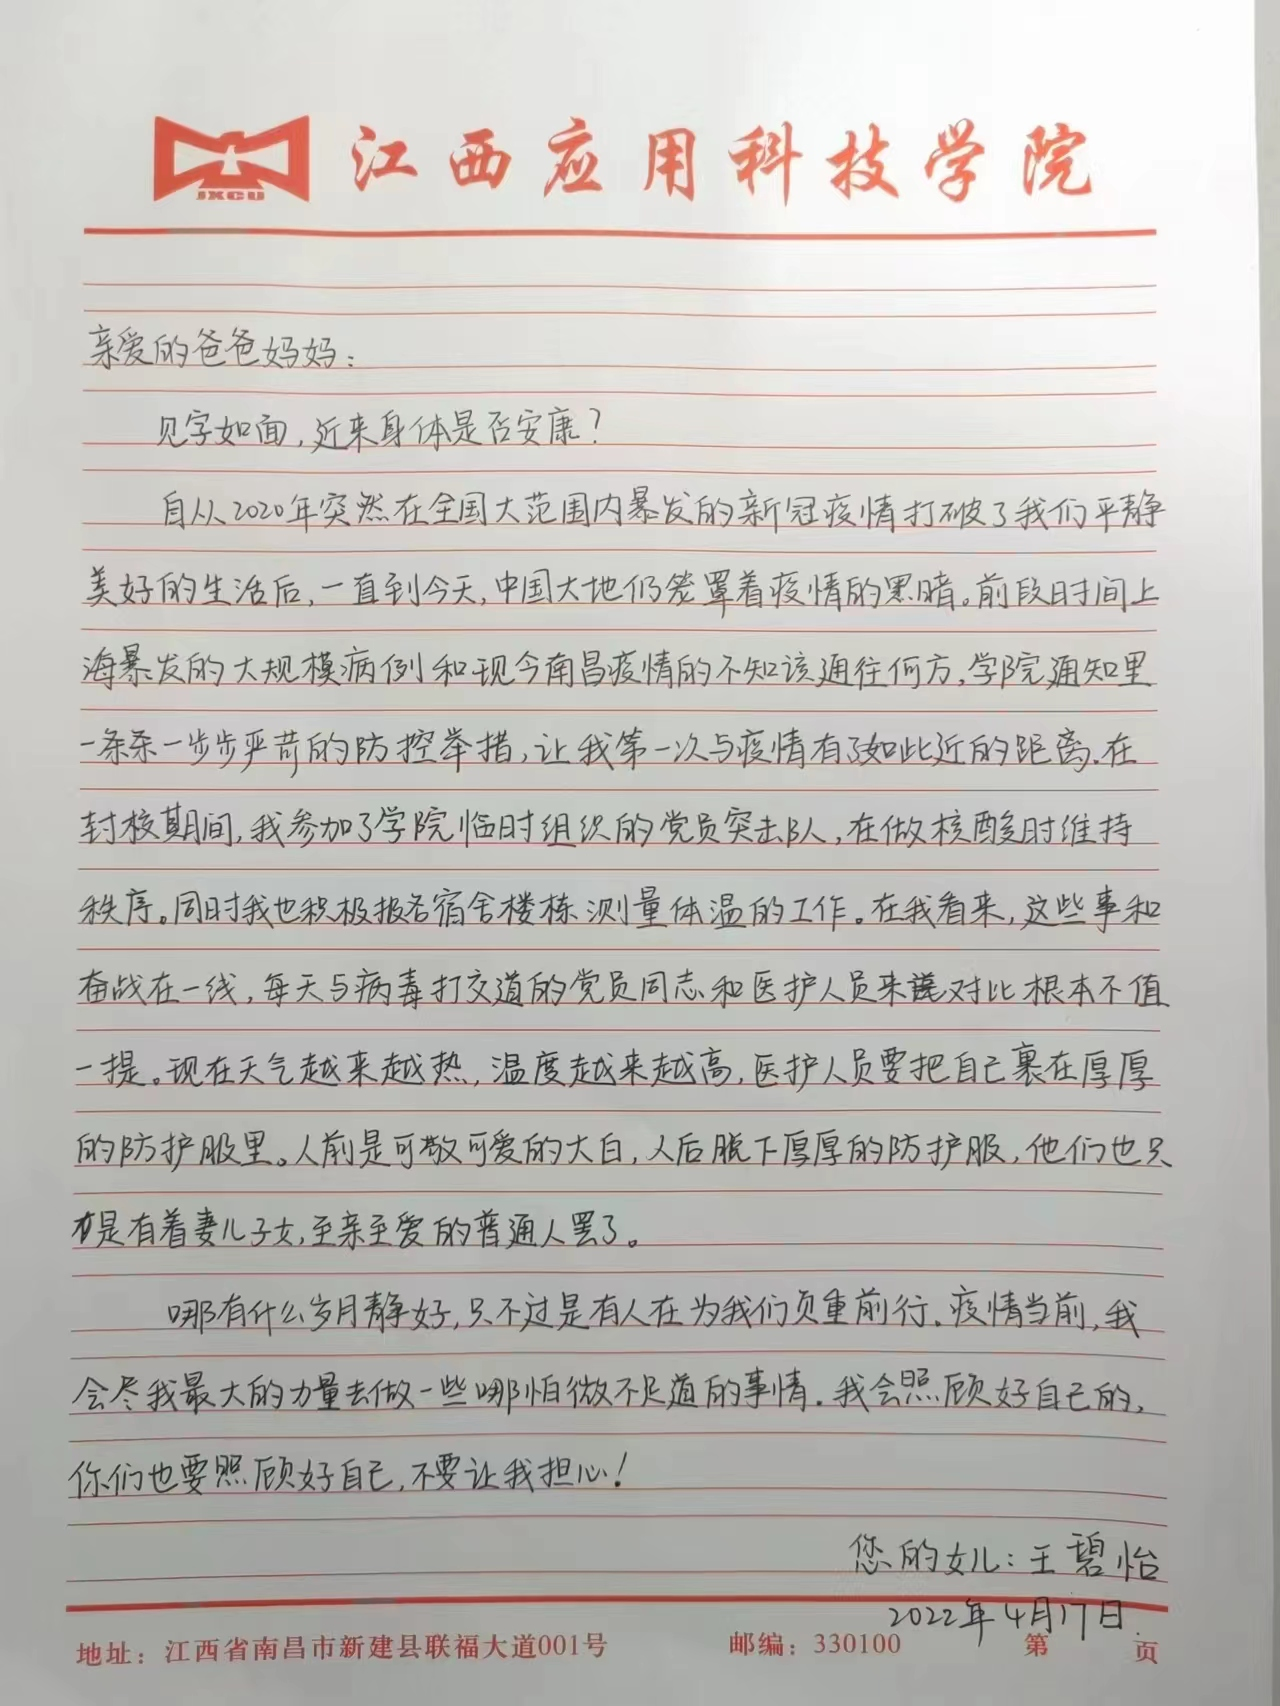 JXCU 江西应用科技学院
亲爱的爸爸妈妈：
见字如面，近来身体是否安康？
自从2020年突然在全国大范围内暴发的新冠疫情打破了我们平静
美好的生活后，一直到今天，中国大地仍笼罩着疫情的黑暗。前段时间上
海暴发的大规模病例和现今南昌疫情的不知该通往何方，学院通知里
一条条一步步严苛的防控举措，让我第一次与疫情有了如此近的距离。在
封校期间，我参加了学院临时组织的党员突击队，在做核酸时维持
秩序。同时我也积极报名宿舍楼栋测量体温的工作。在我看来，这些事和
奋战在一线，每天与病毒打交道的党员同志和医护人员来对比根本不值
一提。现在天气越来越热，温度越来越高，医护人员要把自己裹在厚厚
的防护服里。人前是可敬可爱的大白，人后脱下厚厚的防护服，他们也只
是有着妻儿子女，至亲至爱的普通人罢了。
哪有什么岁月静好，只不过是有人在为我们负重前行。疫情当前，我
会尽我最大的力量去做一些哪怕微不足道的事情。我会照顾好自己的，
你们也要照顾好自己，不要让我担心！
您的女儿：王碧怡
2022年4月17日.
地址：江西省南昌市新建县联福大道001号 邮编：330100 第 页